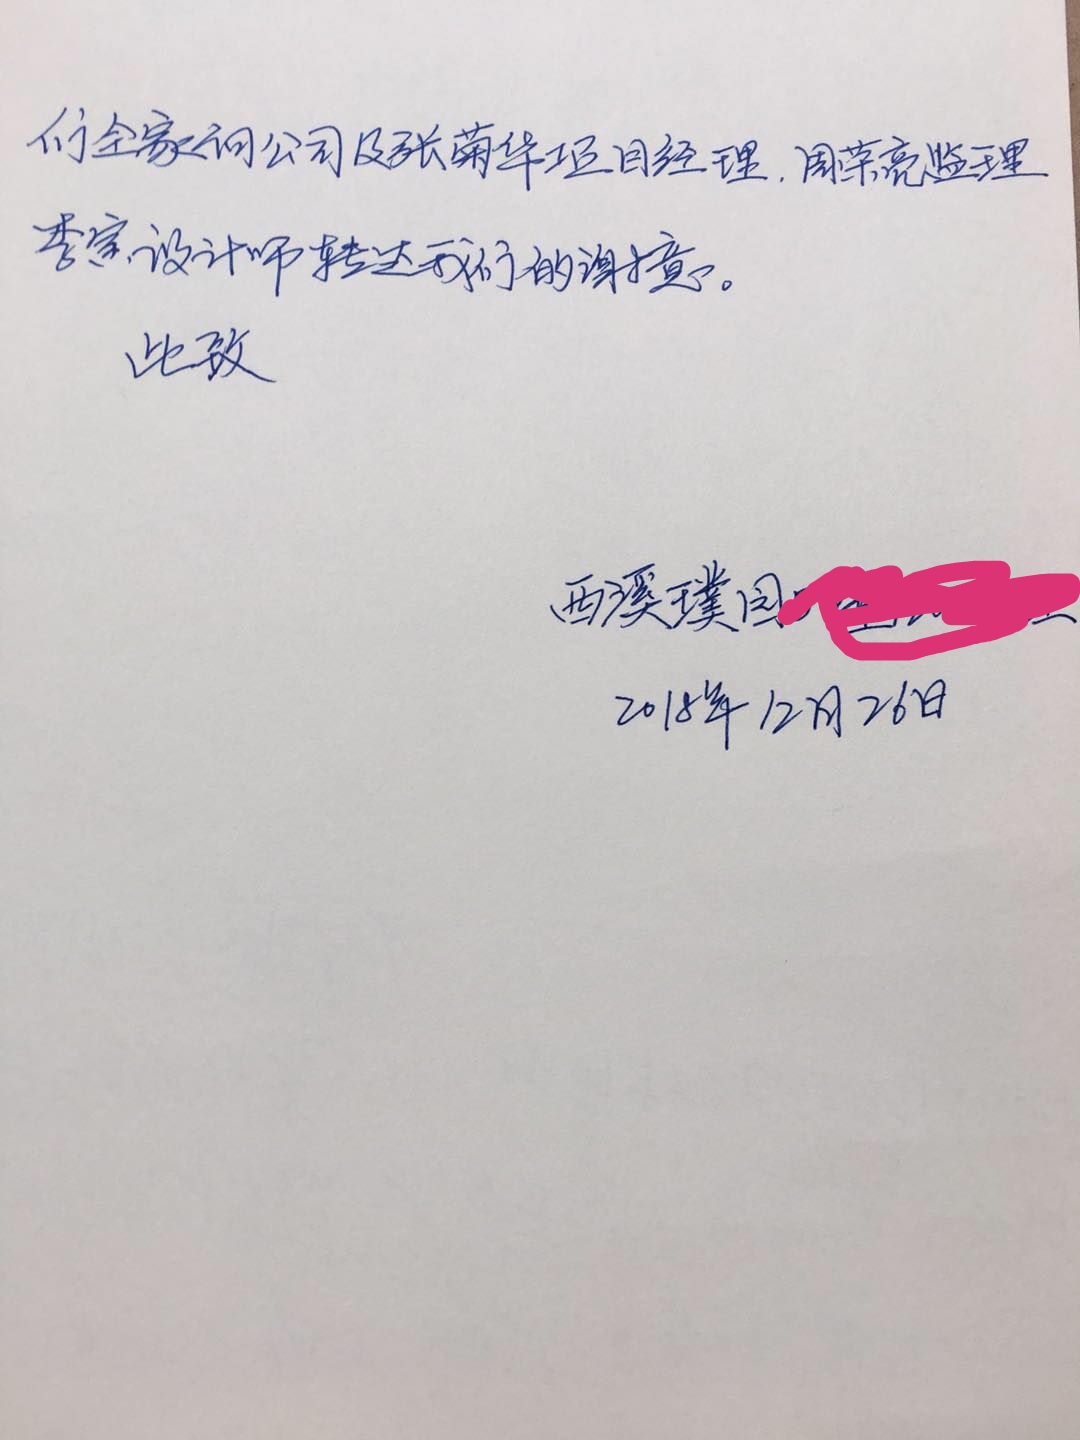 们全家向公司及张菊华项目经理、周荣亮监理
李宗设计师转达我们的谢意。
此致
西溪璞园
2018年12月26日